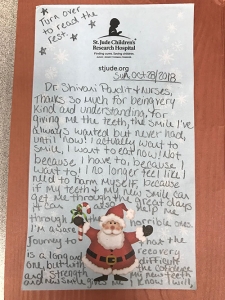 * Turn over
to read the
rest. *
St. Jude Children's
Research Hospital
Finding cures. Saving children.
stjude.org
Sun. Oct 28/2018
Dr. Shivani Pandit + Nurses,
Thanks so much for being very
kind and understanding, for
giving me the teeth, the smile I've
always wanted but never had,
until now! I actually want to
smile, I want to eat now! Not
because I have to, because I
want to! I no longer feel like I
need to harm myself, because
if my teeth + my new smile can
get me through the great days
it can also help me
through the horrible ones
I'm aware that the
Journey to recovery
is a long and difficult
one, but the confidence
and strength my new teeth
and new smile gives me I know I will